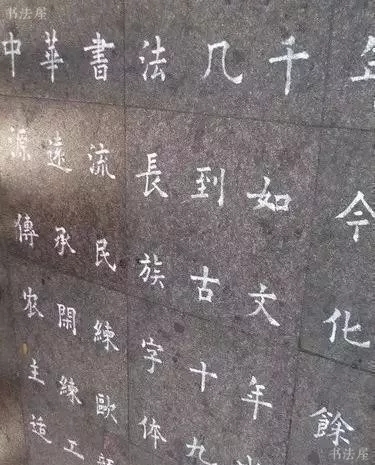 书法屋
中華書法几千
源遠流長到如今
傳承民族古文化
农閑練字十年餘
主練歐体九
造工
书法屋